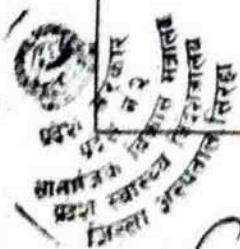 प्रदेश सरकार
प्रदेश नं २
सामाजिक विकास मन्त्रालय
प्रदेश स्वास्थ्य निर्देशनालय
जिल्ला अस्पताल सिरहा